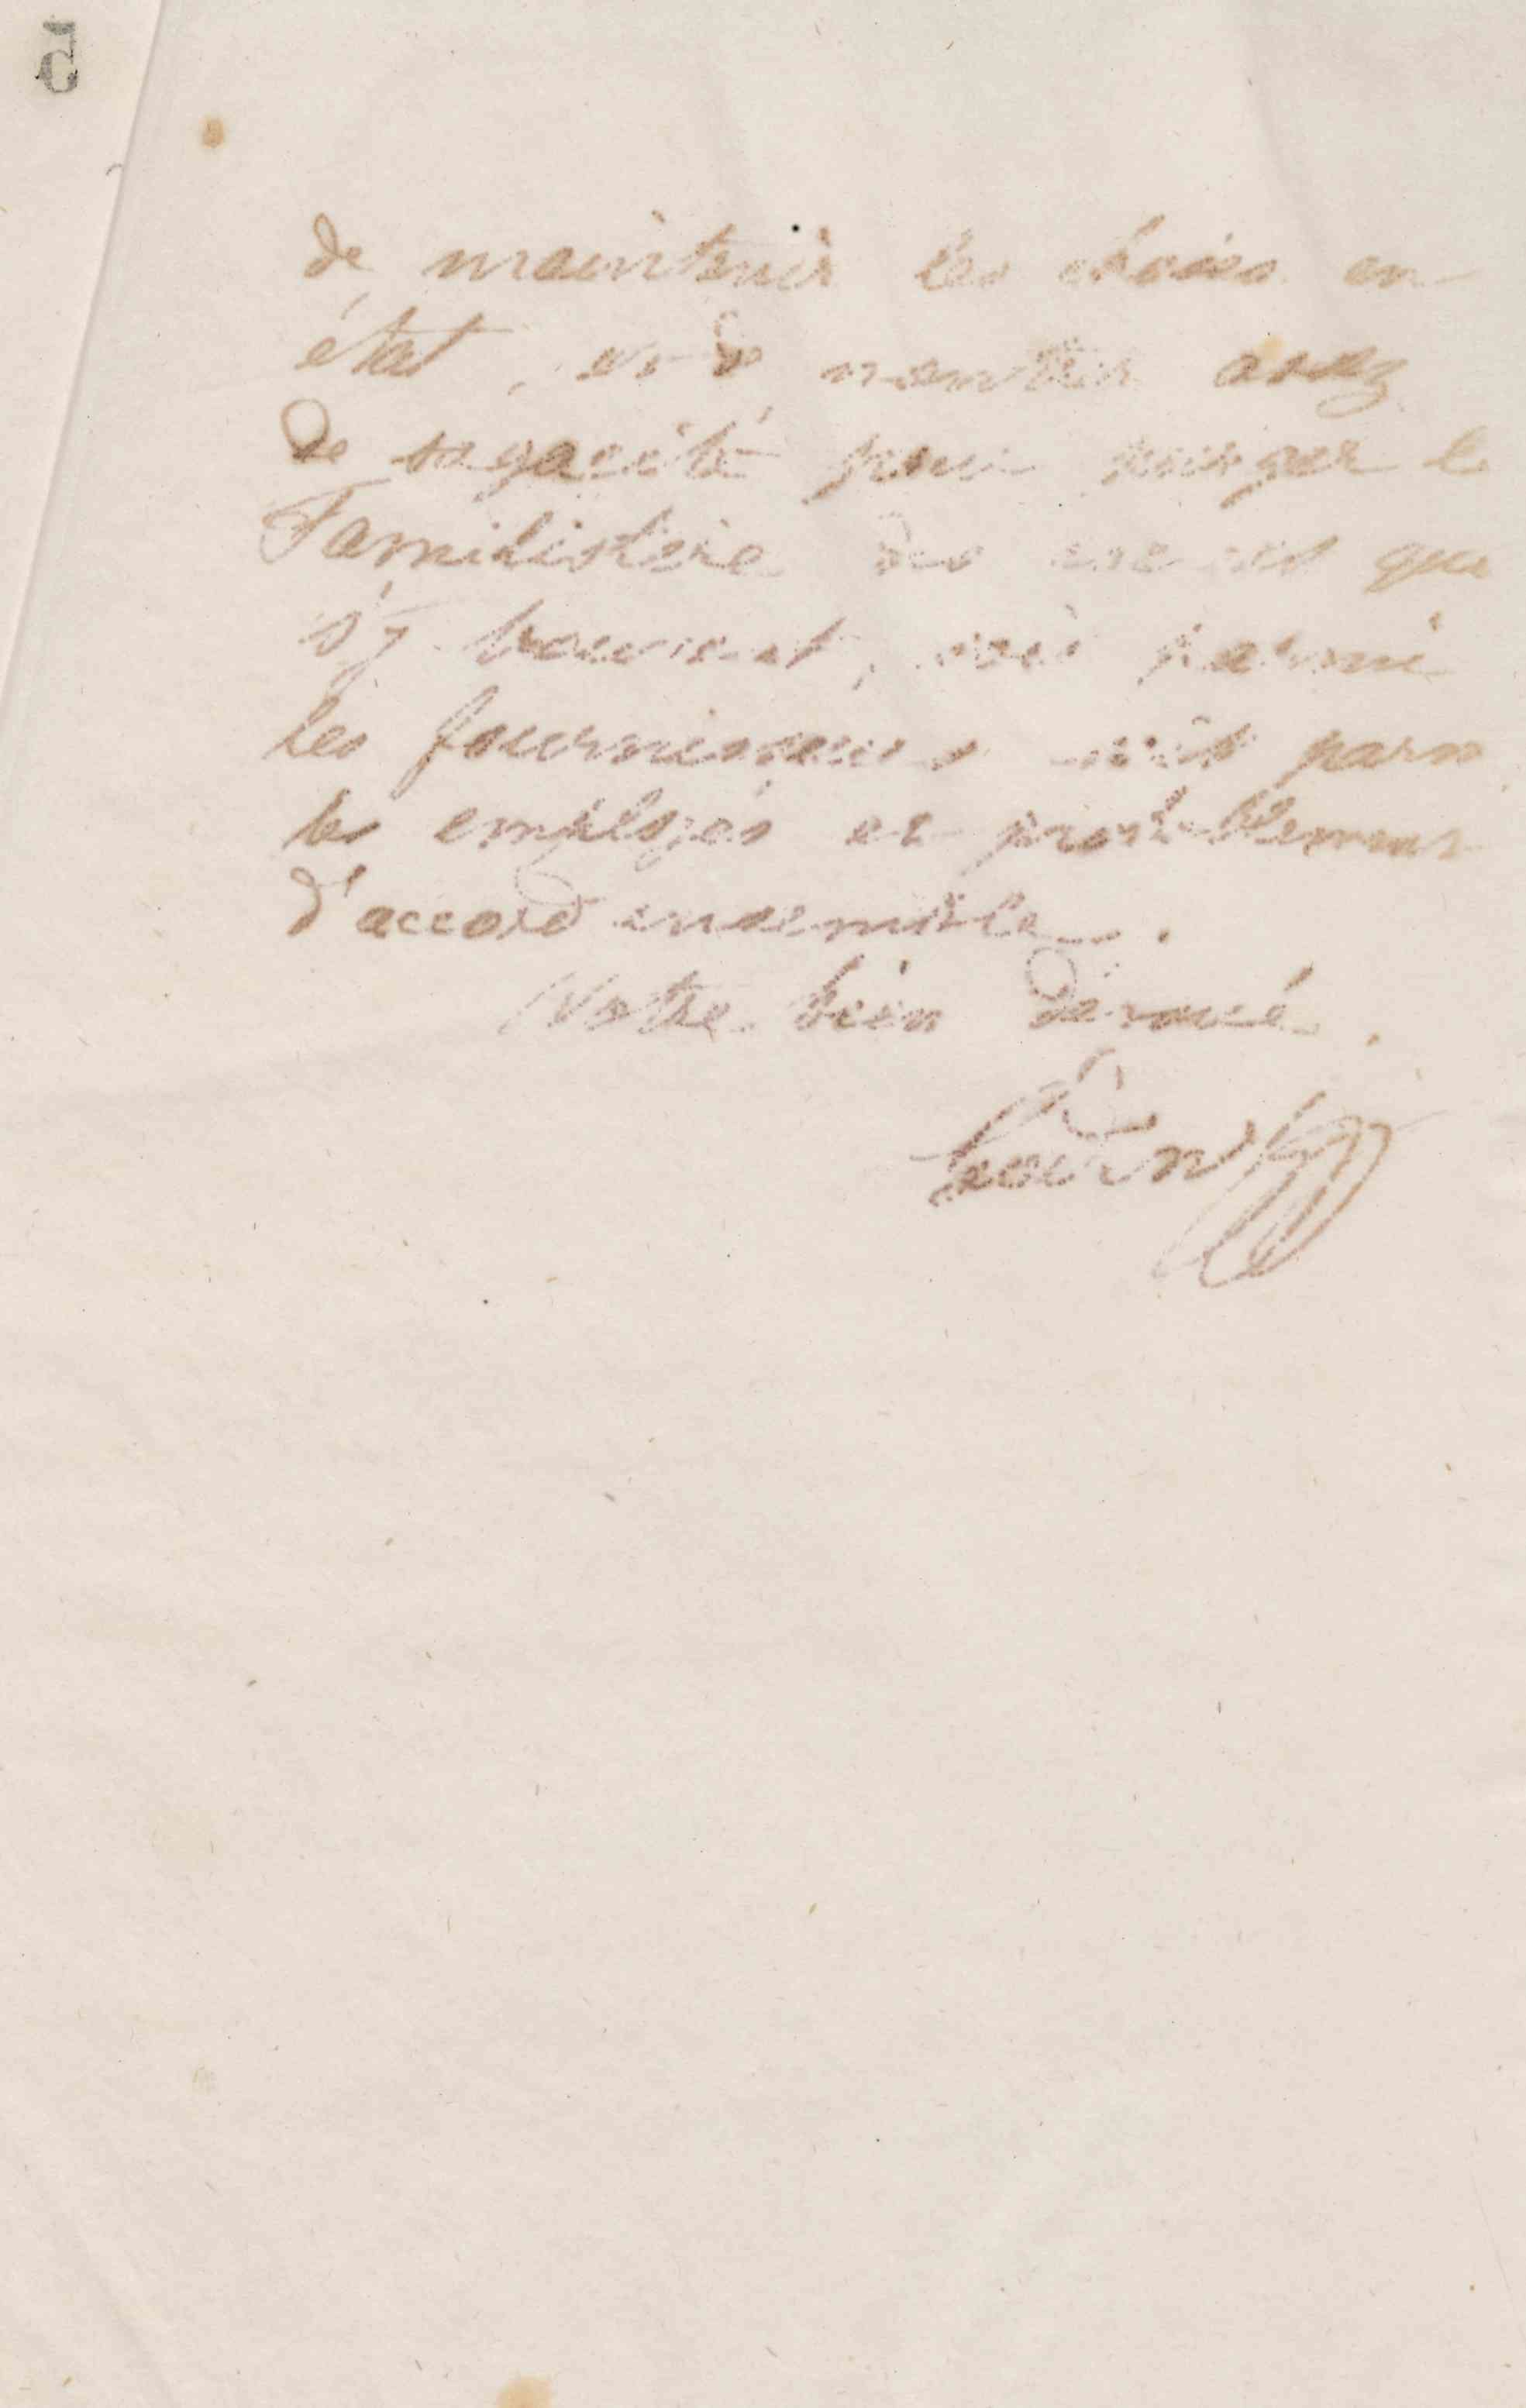 de maintenir les choses en
état, et de montrer assez
de sagacité pour purger le
Familistère des que
s'y trouvent, soit parmi
les fournisseurs soit parm
les employés et probablement
d'accord ensemble.
Votre bien dévoué.
Godin